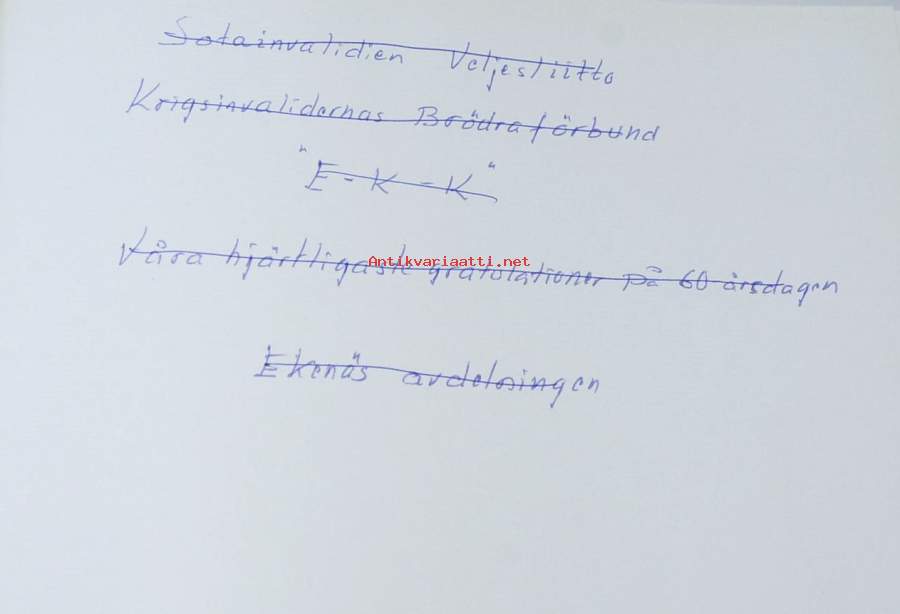 Sotainvalidien Veljesliitto
Krigsinvalidernas Brödraförbund
"E-K-K"
Våra hjärtligaste gratulationer på 60 årsdagen
Antikvariaatti.net
Ekenäs avdelningen